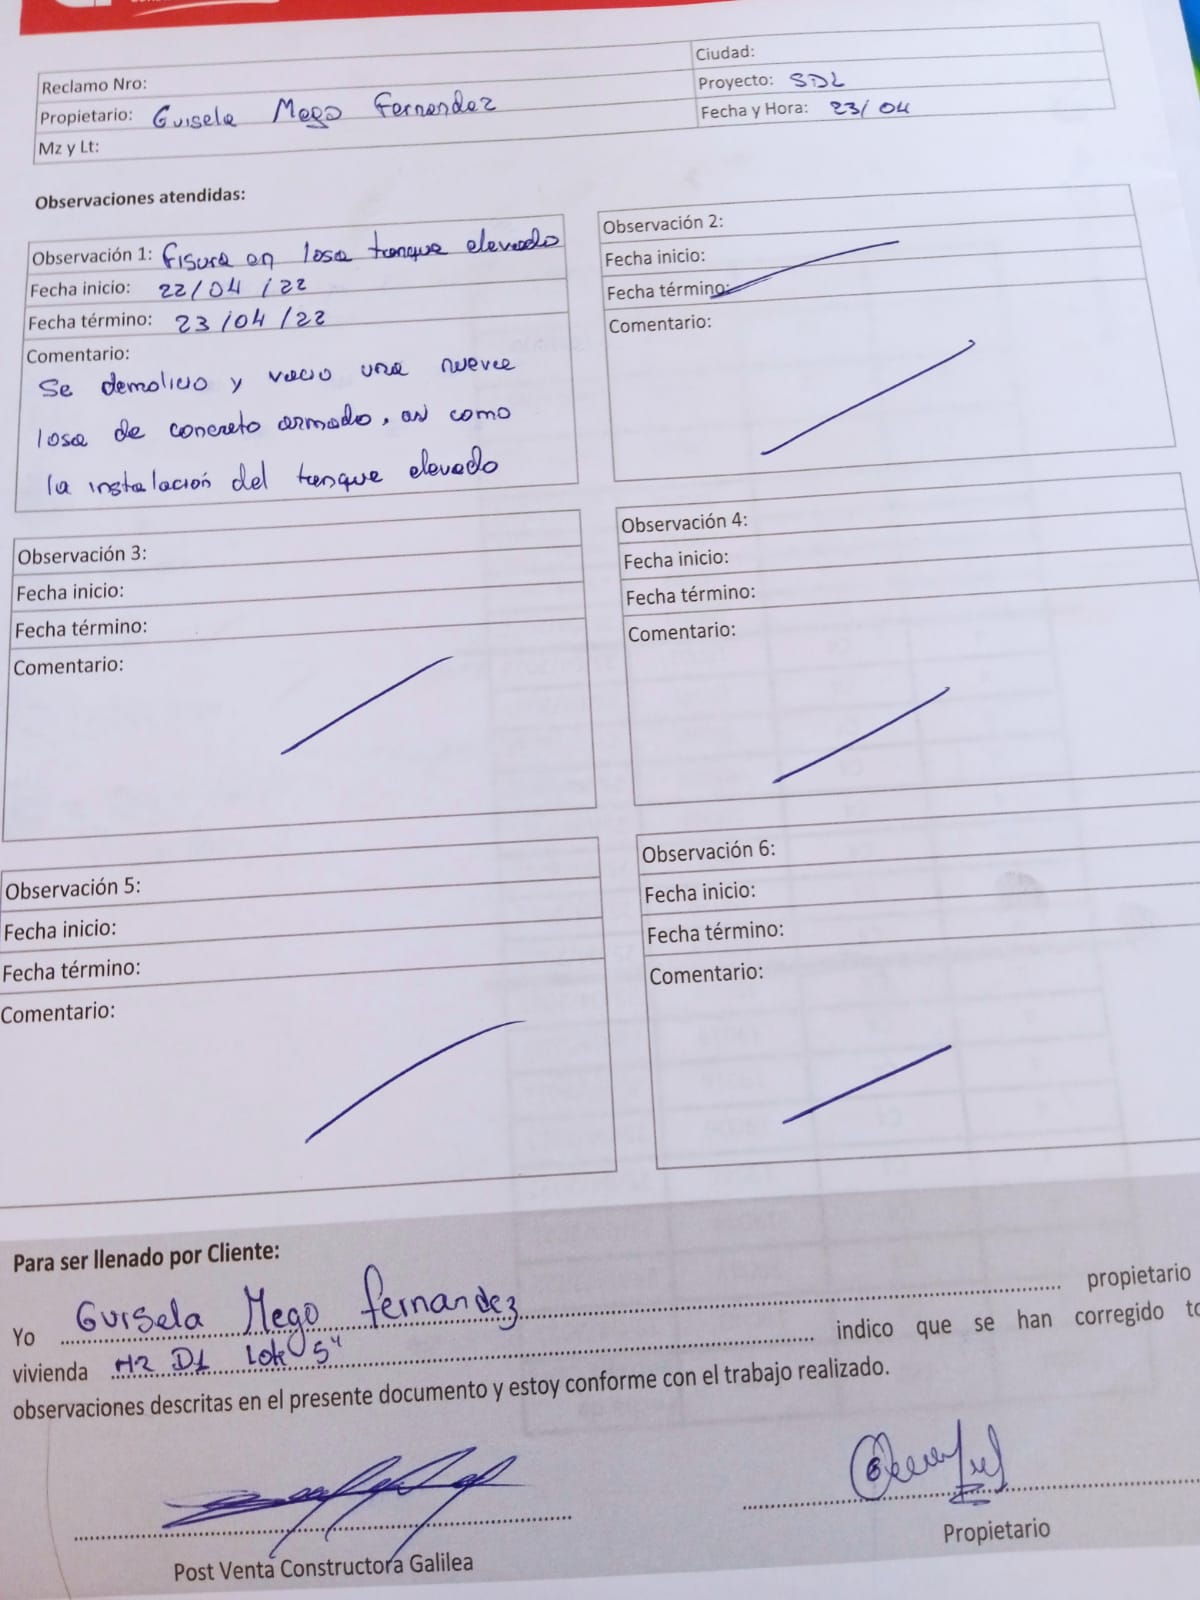 Reclamo Nro:
Ciudad:
Propietario: Guisela Mego Fernandez
Proyecto: SDL
Mz y Lt:
Fecha y Hora: 23/04
Observaciones atendidas:
Observación 1: fisura en losa tanque elevado
Fecha inicio: 22/04/22
Fecha término: 23/04/22
Comentario:
Se demolicio y vacio una nueva
losa de concreto armado, asi como
la instalación del tanque elevado
Observación 2:
Fecha inicio:
Fecha término:
Comentario:
Observación 3:
Fecha inicio:
Fecha término:
Comentario:
Observación 4:
Fecha inicio:
Fecha término:
Comentario:
Observación 5:
Fecha inicio:
Fecha término:
Comentario:
Observación 6:
Fecha inicio:
Fecha término:
Comentario:
Para ser llenado por Cliente:
Yo Guisela Mego fernandez propietario
vivienda Mz D1 Lote 5 indico que se han corregido to
observaciones descritas en el presente documento y estoy conforme con el trabajo realizado.
Post Venta Constructora Galilea
Propietario